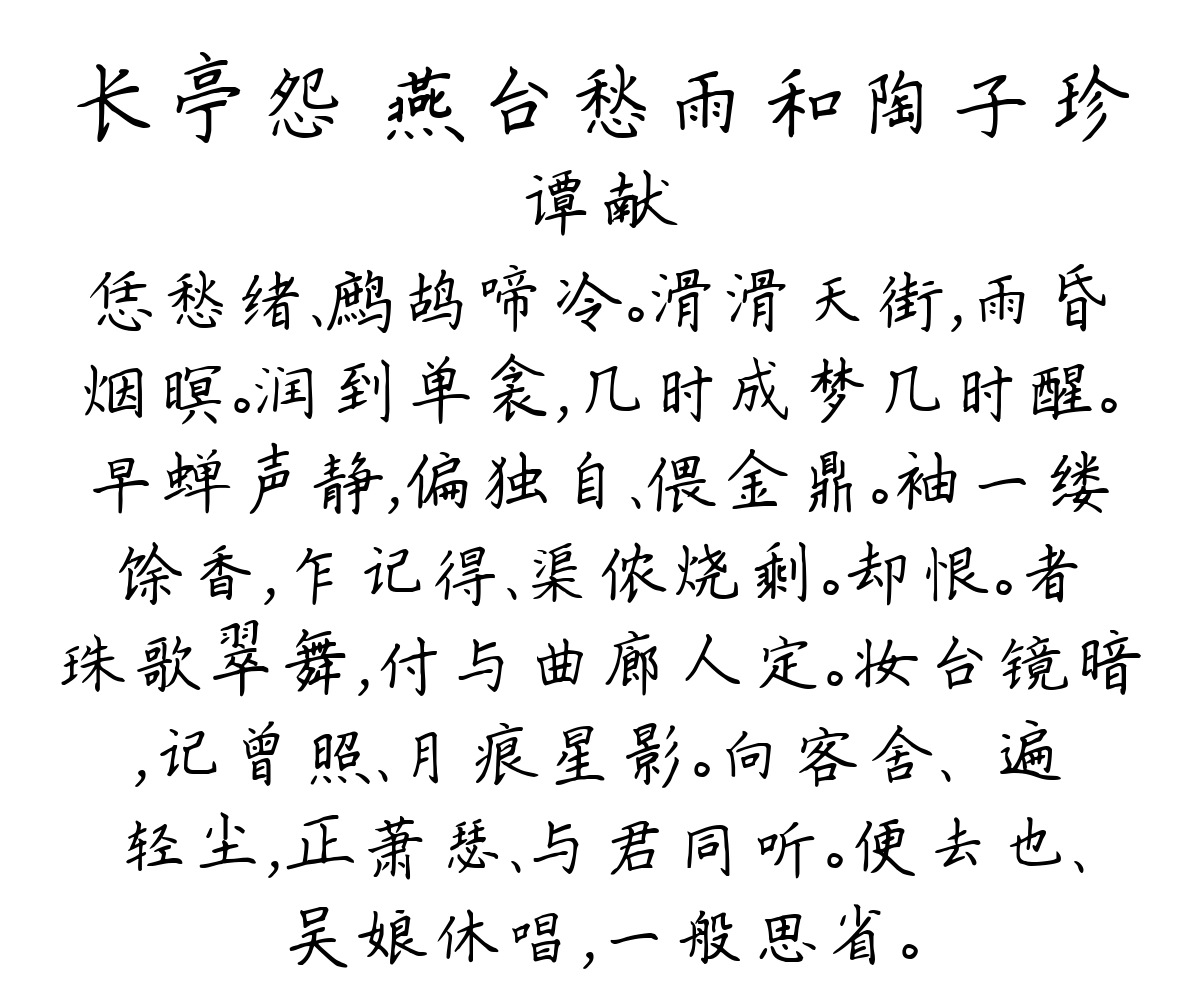 长亭怨 燕台愁雨和陶子珍
谭献
恁愁绪、鹧鸪啼冷。滑滑天街,雨昏
烟暝。润到单衾,几时成梦几时醒。
早蝉声静,偏独自、偎金鼎。袖一缕
馀香,乍记得、渠侬烧剩。却恨。者
珠歌翠舞,付与曲廊人定。妆台镜暗
,记曾照、月痕星影。向客舍、遍
轻尘,正萧瑟、与君同听。便去也、
吴娘休唱,一般思省。